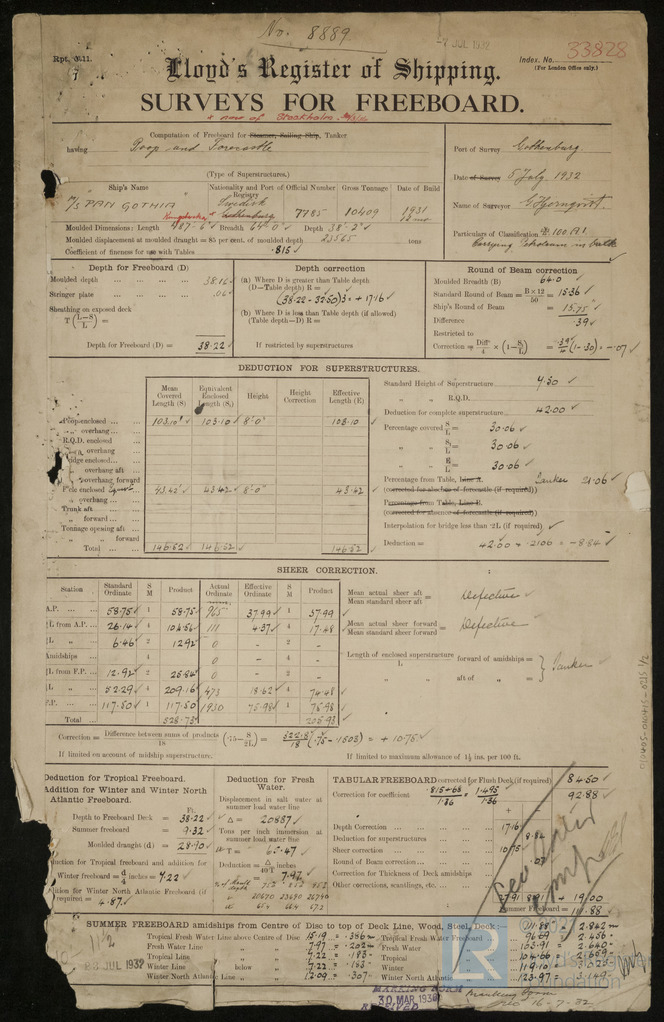 No. 8889
7 JUL 1932
Index. No. 33828
(For London Office only.)
Rpt. 11.
7
Lloyd's Register of Shipping.
SURVEYS FOR FREEBOARD.
+ now of Stockholm
Computation of Freeboard for Steamer, Sailing Ship, Tanker
having Poop and Forecastle
(Type of Superstructures.)
Port of Survey Gothenburg
Date of Survey 5 July 1932
Name of Surveyor
Particulars of Classification
Carrying Petroleum in bulk
Ship's Name
Nationality and Port of Registry
Official Number
Gross Tonnage
Date of Build
M/S "PAN GOTHIA"
Swedish
Gothenburg
7785
10409
1931
Moulded Dimensions: Length 487'-6" Breadth 64'0" Depth 38'-2"
Moulded displacement at moulded draught = 85 per cent. of moulded depth 23565 tons
Coefficient of fineness for use with Tables .815
Depth for Freeboard (D)
Moulded depth 38.16
Stringer plate .06
Sheathing on exposed deck
T (L-S/L) =
Depth for Freeboard (D) = 38.22
Depth correction
(a) Where D is greater than Table depth
(D—Table depth) R =
(38.22-32.50)3 = +17.16
(b) Where D is less than Table depth (if allowed)
(Table depth—D) R =
If restricted by superstructures
Round of Beam correction
Moulded Breadth (B) 64.0
Standard Round of Beam = B×12/50 = 15.36
Ship's Round of Beam = 15.75
Difference .39
Restricted to
Correction = Diff/4 × (1-S/L) = .39/4 (1-.30) = -.07
DEDUCTION FOR SUPERSTRUCTURES.
Mean Covered Length (S)
Equivalent Enclosed Length (S₁)
Height
Height Correction
Effective Length (E)
Poop enclosed 103.10 103.10 8'0" 103.10
„ overhang
R.Q.D. enclosed
„ overhang
Bridge enclosed
„ overhang aft
„ overhang forward
F'cle enclosed 43.42 43.42 8'0" 43.42
„ overhang
Trunk aft
„ forward
Tonnage opening aft
„ „ forward
Total 146.52 146.52 146.52
Standard Height of Superstructure 7.50
„ „ R.Q.D.
Deduction for complete superstructure 42.00
Percentage covered S/L = 30.06
„ „ S₁/L = 30.06
„ „ E/L = 30.06
Percentage from Table, Line A. Tanker 21.06
(corrected for absence of forecastle (if required))
Percentage from Table, Line B.
(corrected for absence of forecastle (if required))
Interpolation for bridge less than ·2L (if required)
Deduction = 42.00 × .2106 = -8.84
SHEER CORRECTION.
Station
Standard Ordinate
S M
Product
Actual Ordinate
Effective Ordinate
S M
Product
A.P. 58.75 1 58.75 965 37.99 1 37.99
⅙L from A.P. 26.14 4 104.56 111 4.37 4 17.48
⅓L „ 6.46 2 12.92 0 - 2 -
Amidships 4 0 - 4
⅓L from F.P. 12.92 2 25.84 0 - 2 -
⅙L „ 52.29 4 209.16 473 18.62 4 74.48
F.P. 117.50 1 117.50 1930 75.98 1 75.98
Total 528.73 205.93
Mean actual sheer aft / Mean standard sheer aft = Defective
Mean actual sheer forward / Mean standard sheer forward = Defective
Length of enclosed superstructure / L forward of amidships =
„ aft of „ = Tanker
Correction = Difference between sums of products / 18 (·75-S/2L) = 322.8/18 (.75-.1503) = +10.75
If limited on account of midship superstructure.
If limited to maximum allowance of 1½ ins. per 100 ft.
Deduction for Tropical Freeboard.
Addition for Winter and Winter North Atlantic Freeboard.
Ft.
Depth to Freeboard Deck = 38.22
Summer freeboard = 9.32
Moulded draught (d) = 28.90
Deduction for Tropical freeboard and addition for
Winter freeboard = d/4 inches = 7.22
Addition for Winter North Atlantic Freeboard (if required) = 4.87
Deduction for Fresh Water.
Displacement in salt water at summer load water line
Δ = 20887
Tons per inch immersion at summer load water line
T = 65.47
Deduction = Δ/40T inches
= 7.97
TABULAR FREEBOARD corrected for Flush Deck (if required) 84.50
Correction for coefficient .815+.68/1.36 = 1.495/1.36 92.88
+ -
Depth Correction 17.16
Deduction for superstructures 8.84
Sheer correction 10.75
Round of Beam correction .07
Correction for Thickness of Deck amidships
Other corrections, scantlings, etc.
27.91 8.91 +19.00
Summer Freeboard = 111.88
SUMMER FREEBOARD amidships from Centre of Disc to top of Deck Line, Wood, Steel, Deck:—
111.88 = 2.842
Tropical Fresh Water Line above Centre of Disc 15.19 = .386 Tropical Fresh Water Freeboard 96.69 = 2.456
Fresh Water Line „ „ 7.97 = .202 Fresh Water „ 103.91 = 2.640
Tropical Line „ „ 7.22 = .183 Tropical „ 104.66 = 2.659
Winter Line below „ 7.22 = .183 Winter „ 119.10 = 3.025
Winter North Atlantic Line „ „ 12.09 = .307 Winter North Atlantic „ 123.97 = 3.149
JUL 1932
MARKING FORM
30 MAR 1936
RECEIVED
Marking Form
16-7-32
LR
Foundation